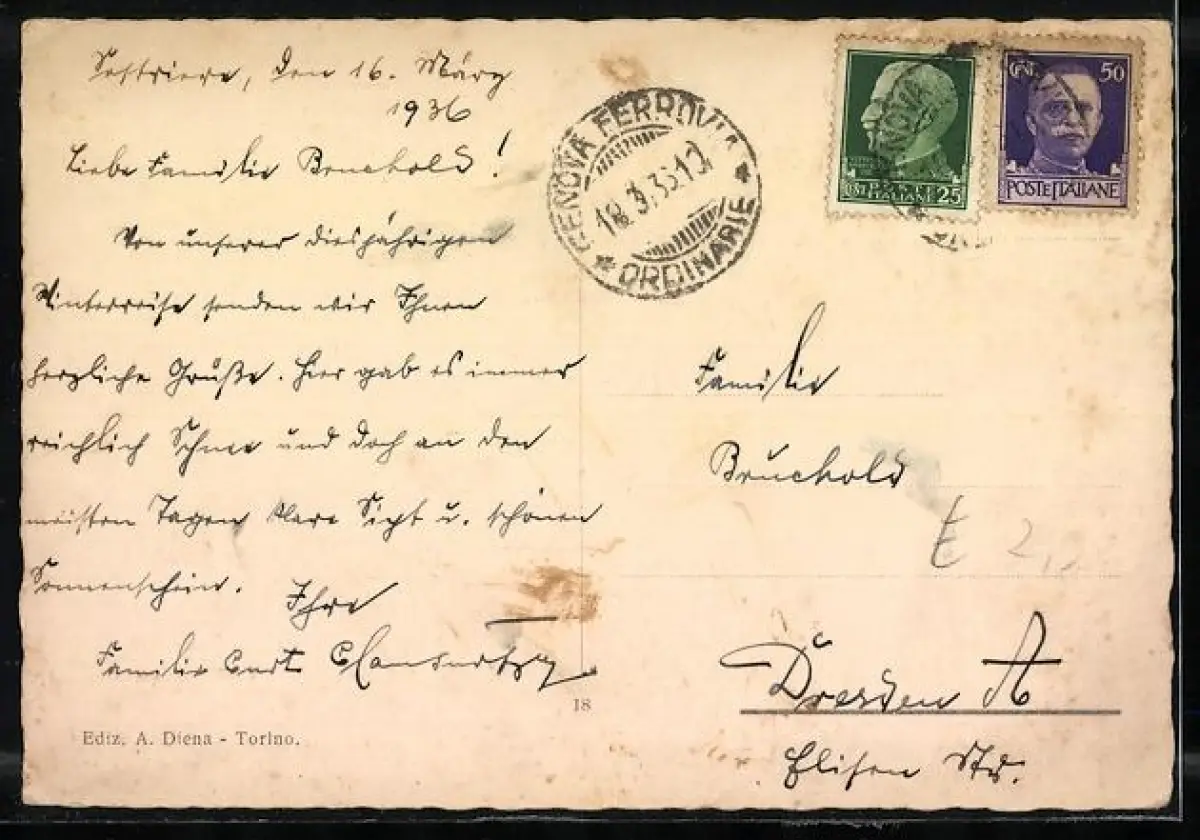 Sestriere, den 16. März
1936
Liebe Familie Bruchold!
Von unserer diesjährigen
Winterreise senden wir Ihnen
herzliche Grüße. Hier gab es immer
reichlich Schnee und doch an den
meisten Tagen klare Sicht u. schönen
Sonnenschein.
Ihre
Familie Curt
18
Ediz. A. Diena - Torino.
GENOVA FERROVIA
18.3.36.12
ORDINARIE
POSTE ITALIANE 25
CENT. 50
POSTE ITALIANE
Familie
Bruchold
Dresden A
Elisen Str.